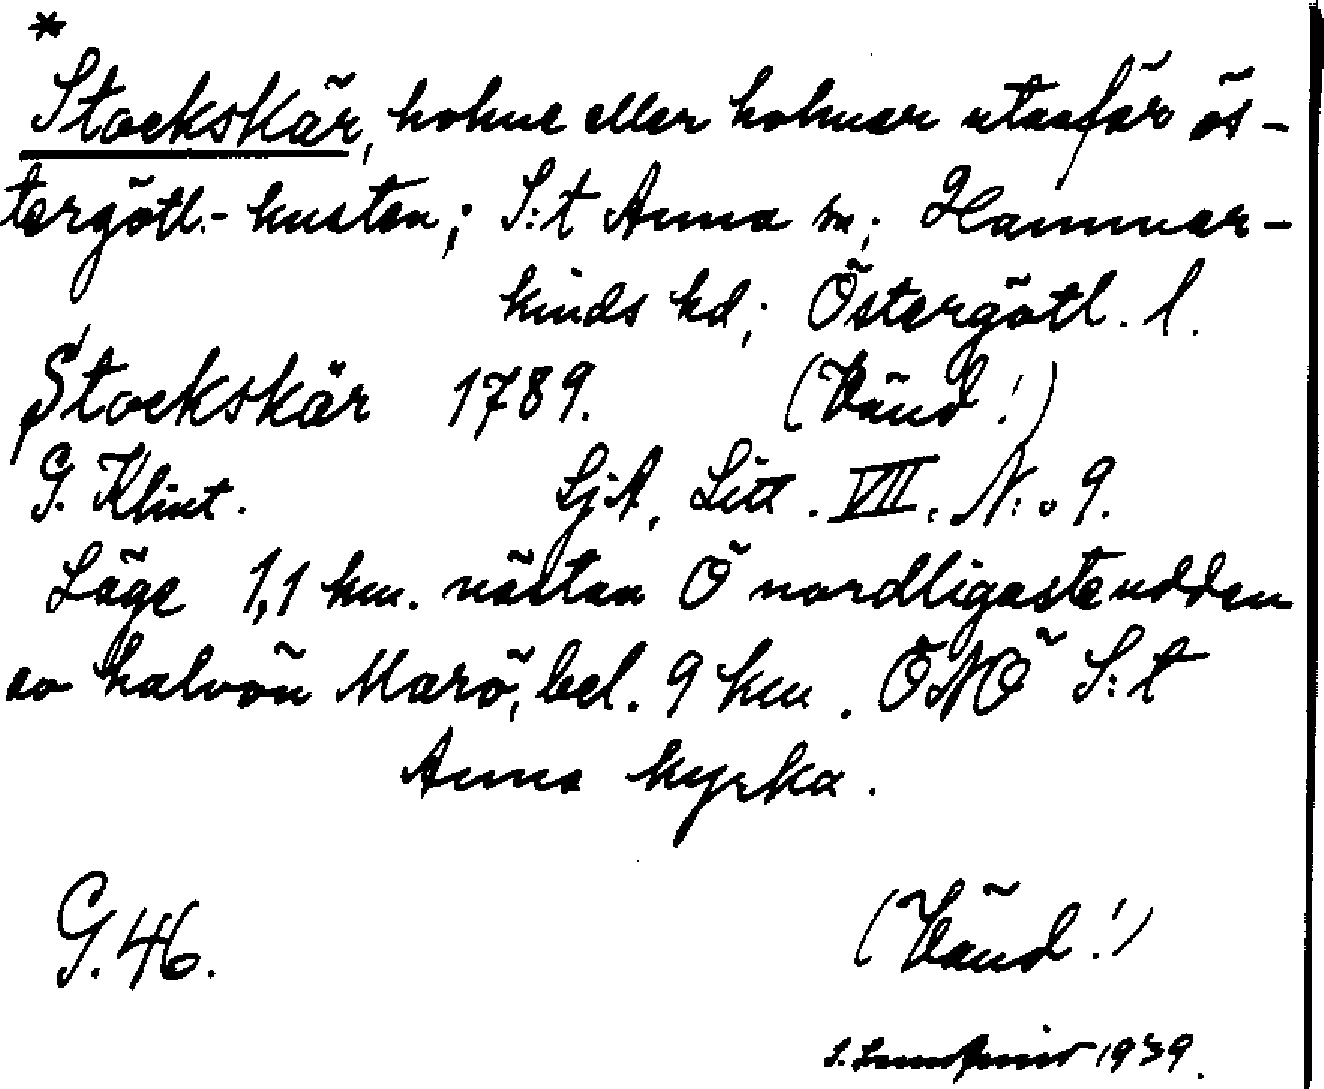 *
Stockskär, holme eller holmar utanför ös-
tergötl.-kusten; S:t Anna sn; Hammar-
kinds hd; Östergötl. l.
Stockskär 1789. (Vänd!)
G. Klint. SjA, Litt. VII. N:o 9.
Läge 1,1 km. nästan Ö nordligaste udden
av halvön Marö, bel. 9 km. ÖNÖ S:t
Anna kyrka.
G. 46. (Vänd!)
1939.